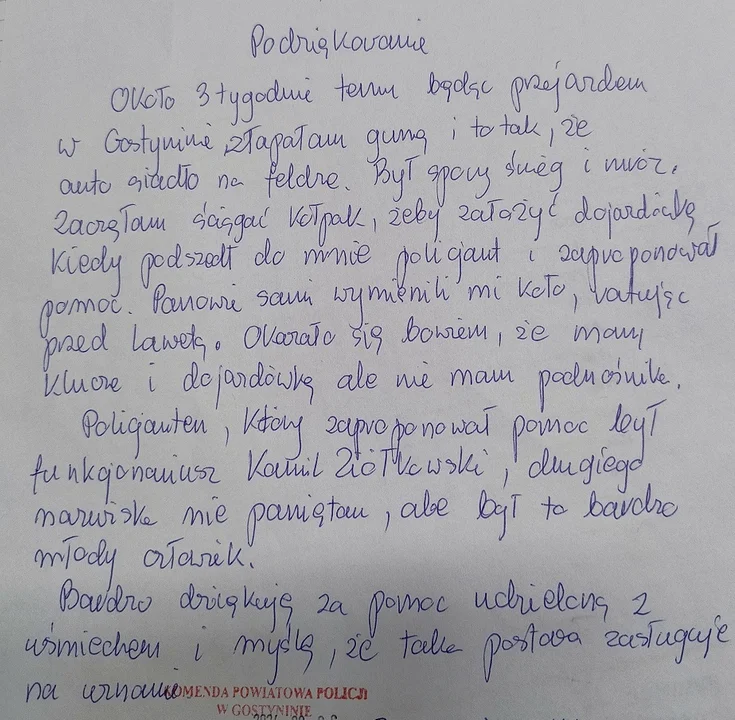 Podziękowanie
Około 3 tygodnie temu będąc przejazdem
w Gostyninie złapałam gumę i to tak, że
auto siadło na feldze. Był spory śnieg i mróz.
Zaczęłam ściągać kołpak, żeby założyć dojazdówkę
kiedy podszedł do mnie policjant i zaproponował
pomoc. Panowie sami wymienili mi koło, ratując
przed lawetą. Okazało się bowiem, że mamy
klucze i dojazdówkę ale nie mam podnośnika.
Policjantem, który zaproponował pomoc był
funkcjonariusz Kamil Ziółkowski, drugiego
nazwiska nie pamiętam, ale był to bardzo
młody człowiek.
Bardzo dziękuję za pomoc udzieloną z
uśmiechem i myślę, że taka postawa zasługuje
na uznanie
KOMENDA POWIATOWA POLICJI
W GOSTYNINIE